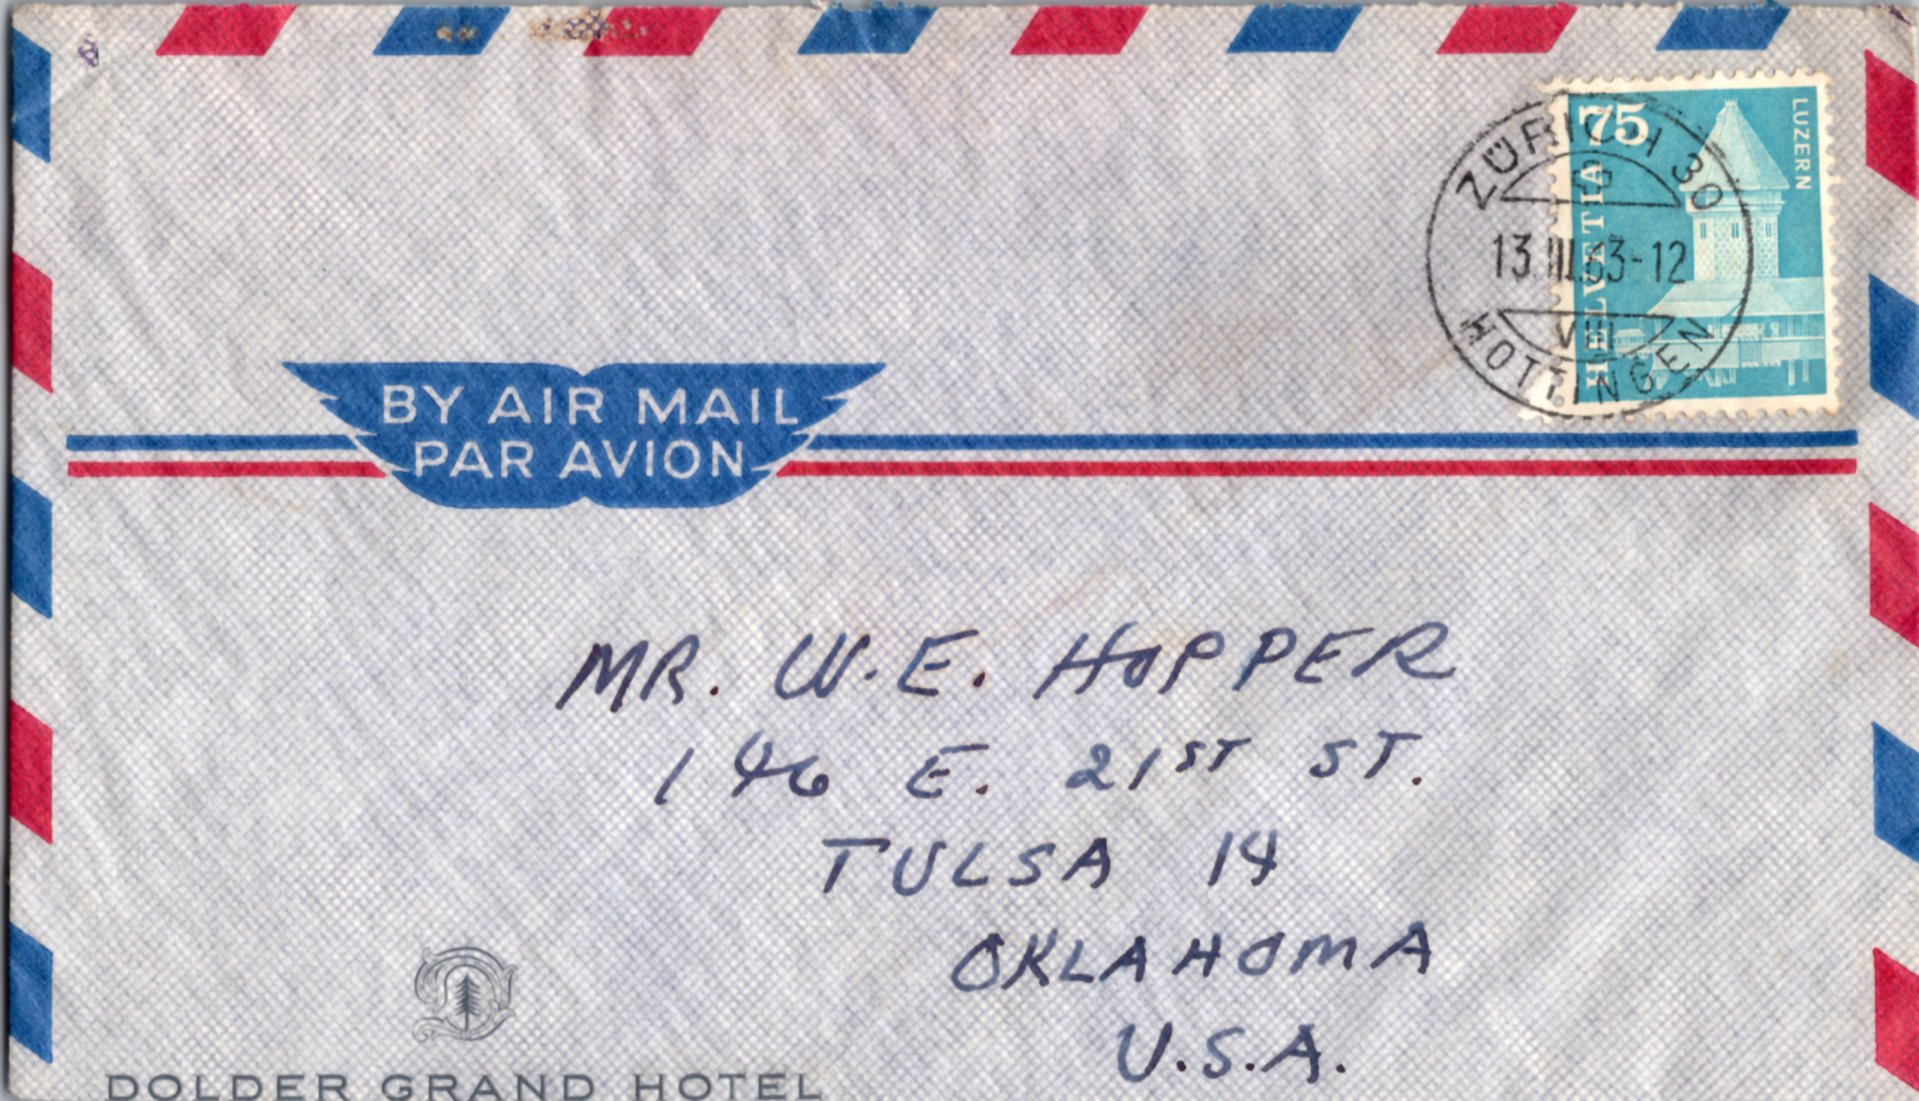 75
HELVETIA
LUZERN
ZÜRICH 30
13.III.63-12
VIII
HOTTINGEN
BY AIR MAIL
PAR AVION
MR. W. E. HOPPER
146 E. 21ST ST.
TULSA 14
OKLAHOMA
U.S.A.
DOLDER GRAND HOTEL